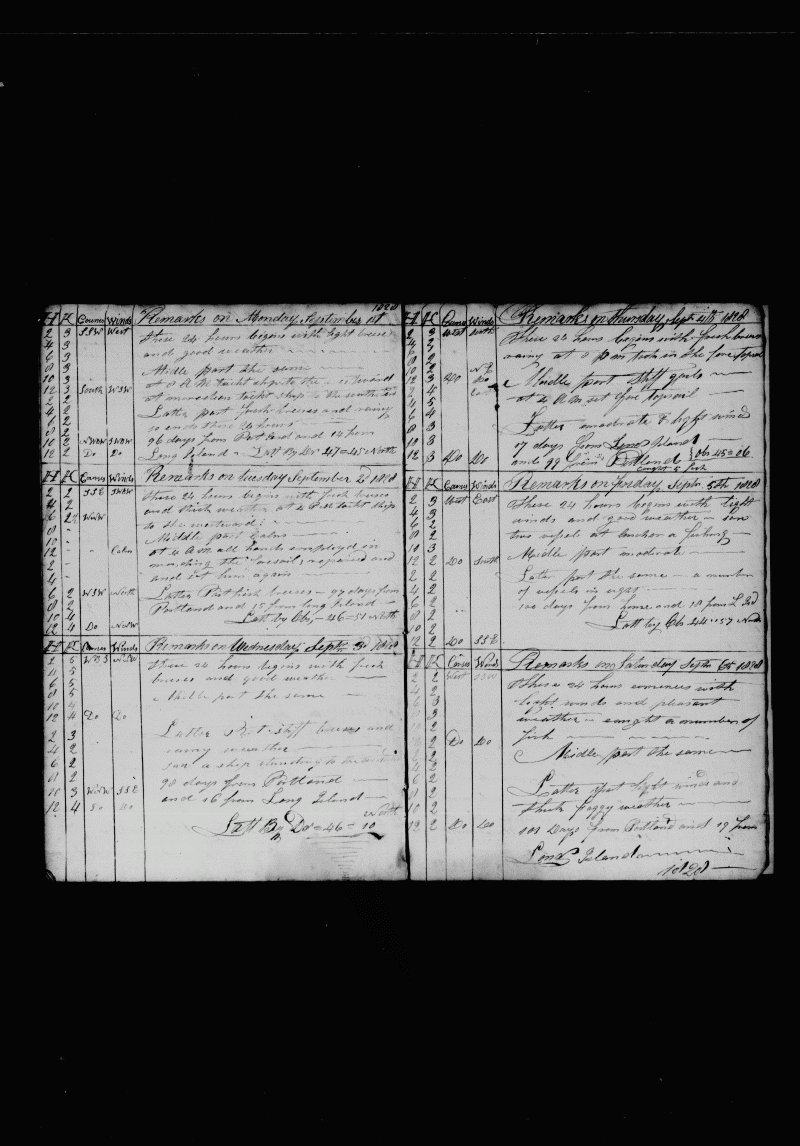 1828
H K Courses Winds Remarks on Monday September 1st
2 3 SSW West These 24 hours begins with light breeses
4 3 and good weather
6 3
8 3 Midle part the same
10 3 at 8 A M tackt ship to the
12 3 South WSW at meredian tackt ship to the
2 2 Latter part fresh breeses and rainy
4 2 so ends these 24 hours
6 2
8 2
10 2 WNW 96 days from Portland and 14 from
12 2 Do Do Long Island Latt By Do 47=45 North
H K Courses Winds Remarks on tuesday September 2d 1828
2 2 SSE these 24 hours begins with fresh breeses
4 2 and thick weather at 4 P M tackt ship
6 2 WNW to the westward
8 - Middle part Calm
10 -
12 - - Calm at 4 A M all hands employd in
2 - the foresail, repaired and
4 - and bent him again
6 2 WSW North Latter Part fresh breeses - 97 days from
8 2 Portland and 15 from long Island
10 4 Latt by Obs, - 46-51 North
12 4 Do
H K Courses Winds Remarks on Wednesday Septm 3d 1828
2 5 these 24 hours begins with fresh
4 5 breeses and good weather
6 5
8 5 Middle part the same
10 4
12 4 Do Do
2 3 Latter Part stiff breeses and
4 2 rainy weather
6 2 saw a ship standing to the
8 2 98 days from Portland
10 3 WNW SSE and 16 from Long Island
12 4 Do Do North
Latt By Do = 46 = 10
H K Courses Winds Remarks on thursday Sept 4th 1828
2 3 West South These 24 hours begins with fresh breeses
4 2 rainy at 8 p m took in the fore topsail
12 3 Do Do Middle part Stiff gails
at 4 A M set fore topsail
Latter moderate & light winds
10 3 17 days from Long Island
12 3 Do Do and 99 from Portland Obs 45=06
caught 5 fish
H K Courses Winds Remarks on friday Septm 5th 1828
2 3 West East These 24 hours begins with light
4 3 winds and good weather
6 2 two vessels at anchor a fishing
8 2
10 3 Middle part moderate
12 2 Do South
2 2 Later part the same - a number
4 2 of vessels in sight
6 2 100 days from home and 18 from L Isd
8 2 Latt by Obs 44=57 North
10 2
12 2 Do SSE
H K Courses Winds Remarks on Saturday Septm 6th 1828
2 2 West These 24 hours comences with
4 2 light winds and pleasant
6 3 weather - caught a number of
8 3 fish
12 2 Do Do Middle part the same
Latter part light winds and
thick foggy weather
2 Do Do 101 Days from Portland and 19 from
Long Island
1828